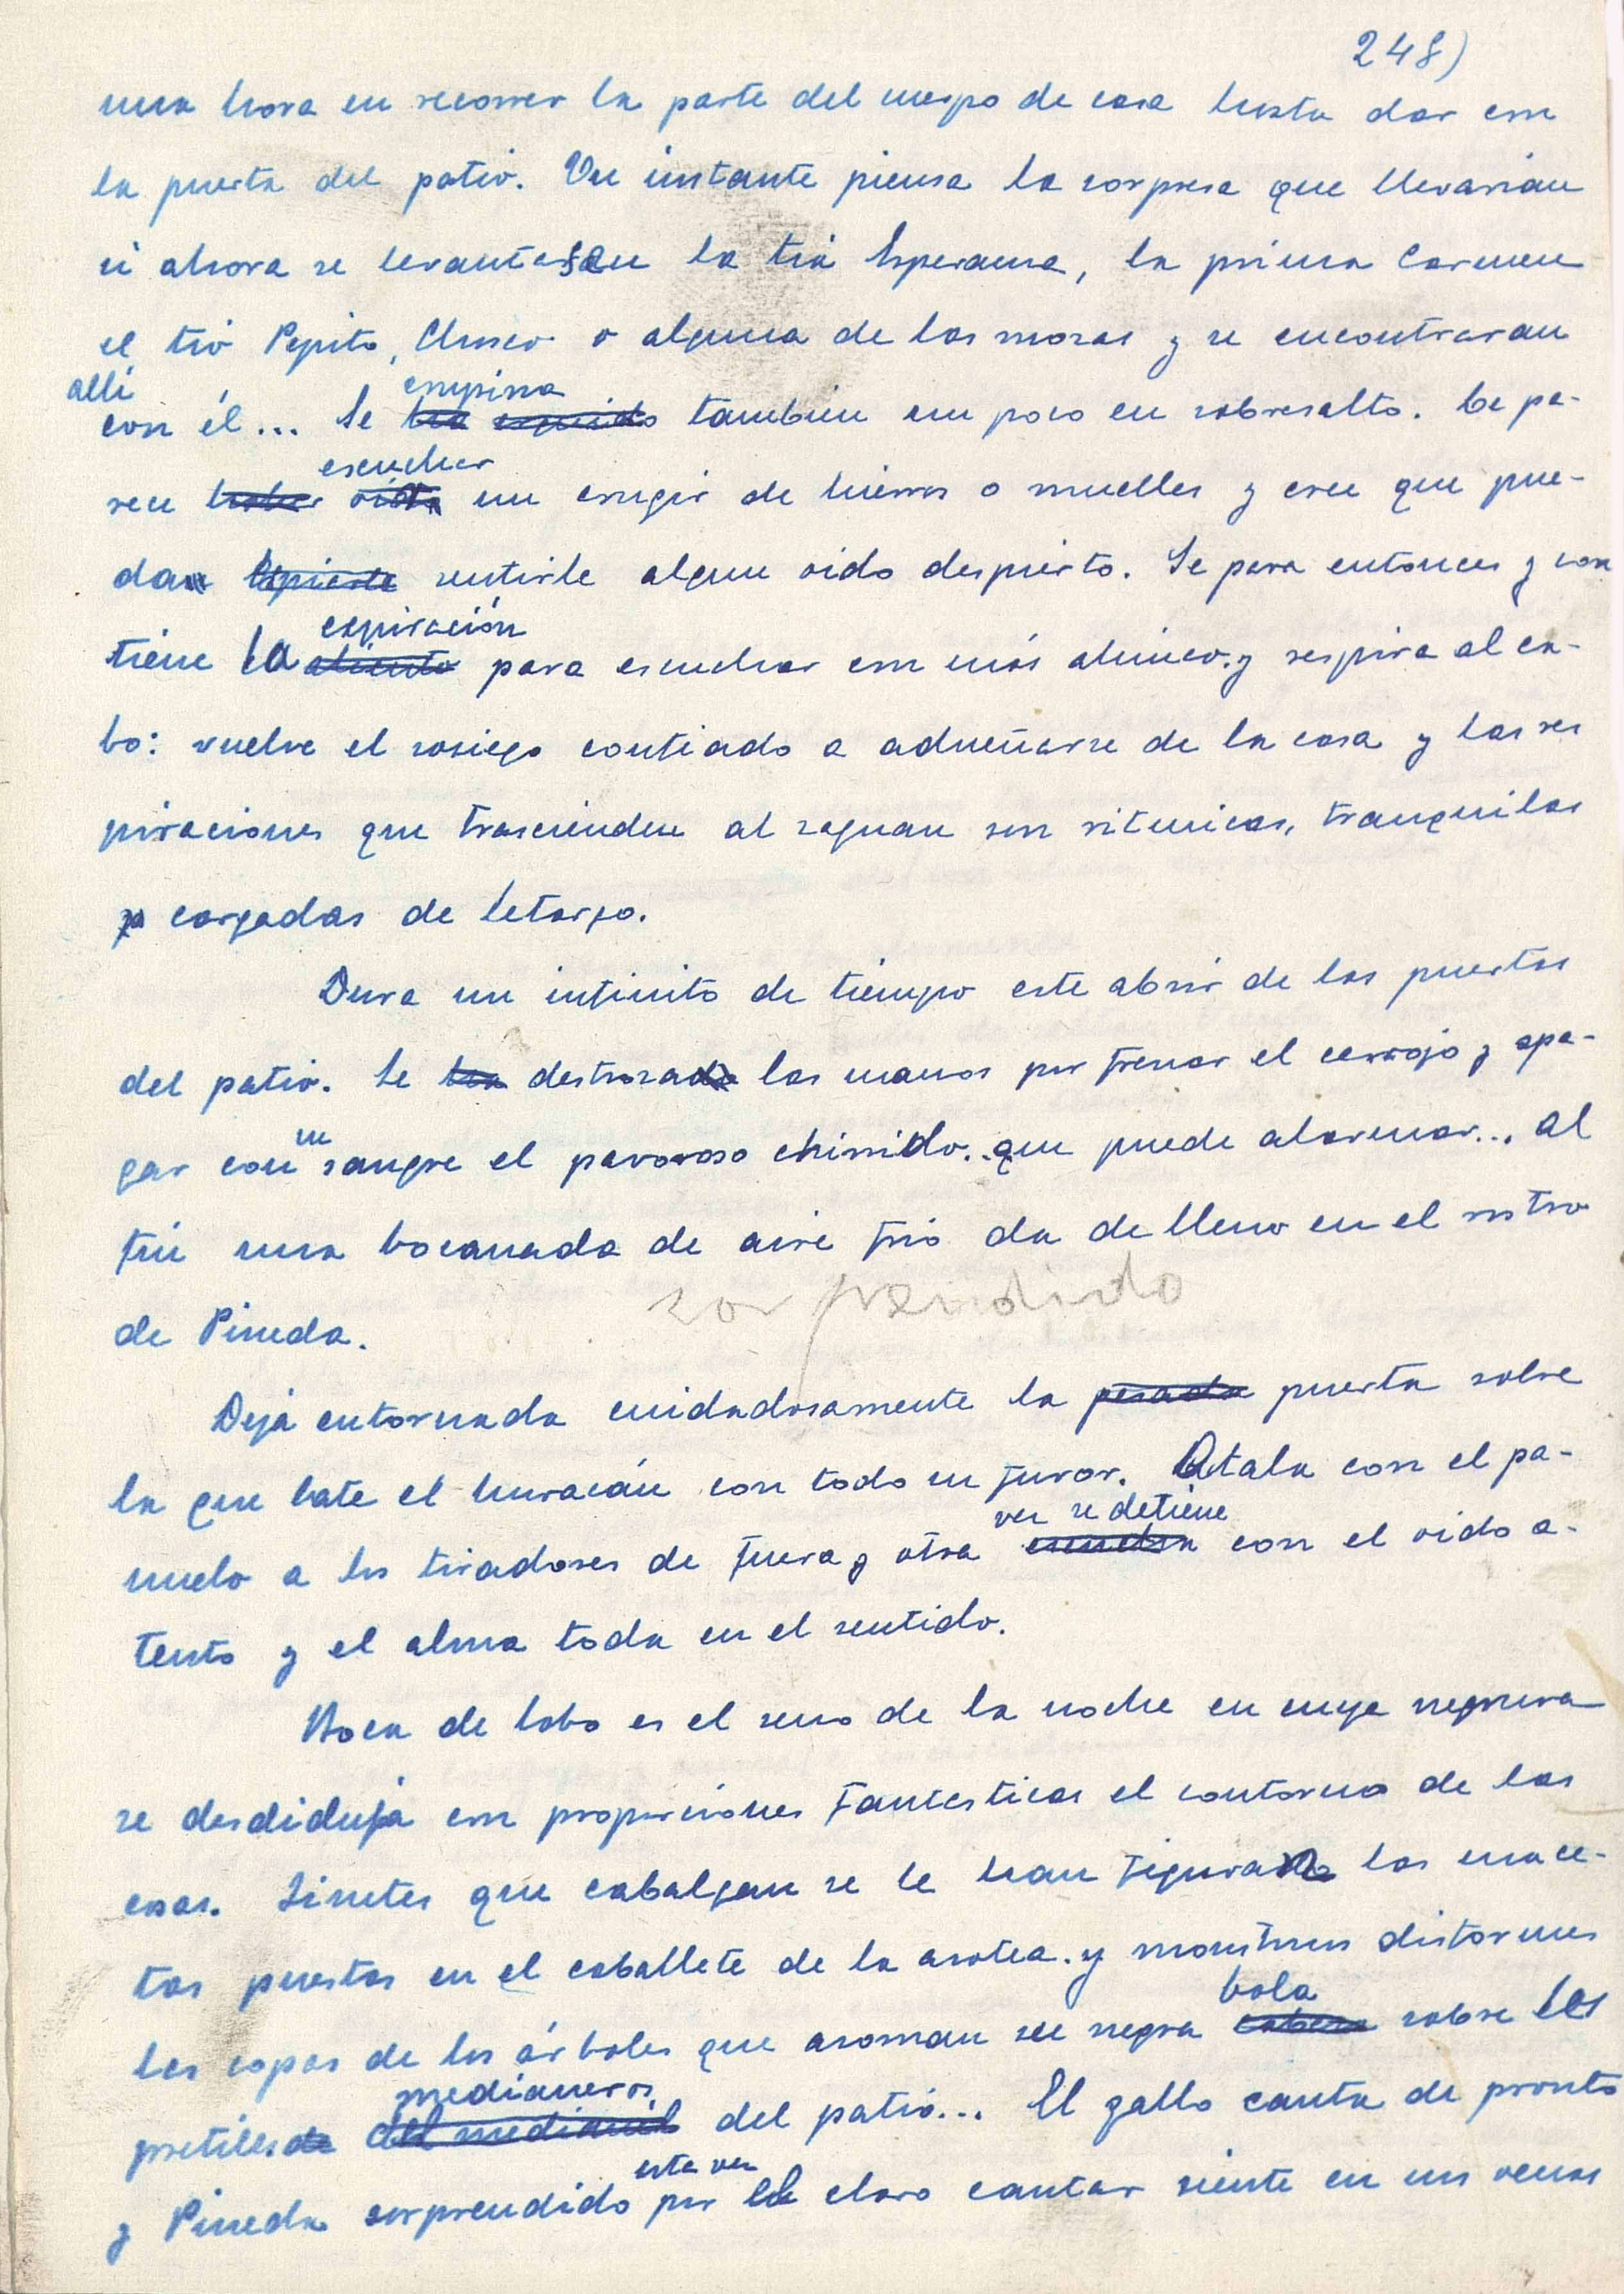 248)
una hora en recorrer la parte del cuerpo de casa hasta dar con
la puerta del patio. Un instante piensa la sorpresa que llevarian
si ahora se levantasen la tia Esperanza, la prima Carmen
el tio Pepito, Chisco o alguna de las mozas y se encontraran
alli empina
con él... Se ha también un poco en sobresalto. Le pa-
escuchar
rece haber oido un crugir de hierros o muelles y cree que pue-
dan sentirle algun oido despierto. Se para entonces y con
expiración
tiene la aliento para escuchar con más ahinco y respira al ca-
bo: vuelve el sosiego confiado a adueñarse de la casa y las res
piraciones que trascienden al zaguan son ritmicas, tranquilas
y cargadas de letargo.
Dura un infinito de tiempo este abrir de las puertas
del patio. Se ha destrozado las manos por frenar el cerrojo y apa-
su
gar con sangre el pavoroso chirrido.. que puede alarmar... Al
fin una bocanada de aire frio da de lleno en el rostro
sorprendido
de Pineda.
Deja entornada cuidadosamente la pesada puerta sobre
la que bate el huracán con todo su furor. Atala con el pa-
vez se detiene
ñuelo a los tiradores de fuera y otra escucha con el oido a-
tento y el alma toda en el sentido.
Boca de lobo es el seno de la noche en cuya negrura
se desdibuja con proporciones fantasticas el contorno de las
cosas. Jinetes que cabalgan se le han figurado las mace-
tas puestas en el caballete de la azotea y monstruos disformes
bola
las copas de los árboles que asoman su negra cabeza sobre los
medianeros
pretiles de del medianil del patio... El gallo canta de pronto
esta vez
y Pineda sorprendido por el claro cantar siente en sus venas